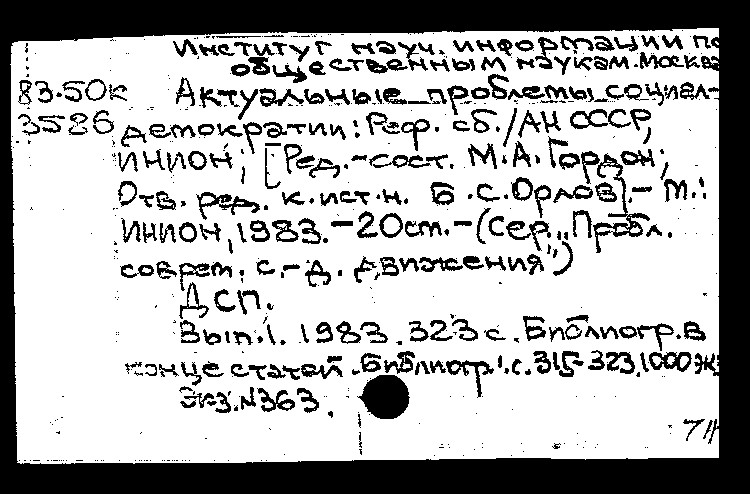 Институт науч. информации по
общественным наукам. Москва
83.50к Актуальные проблемы социал-
3526 демократии: Реф. сб./АН СССР,
ИНИОН; [Ред.-сост. М.А. Гордон;
Отв. ред. к.ист.н. Б.С. Орлов].- М.:
ИНИОН, 1983.-20см.-(Сер. „Пробл.
соврем. с.-д. движения")
ДСП.
Вып.1. 1983. 323с. Библиогр. в
конце статей. Библиогр.: с. 315-323. 1000 экз
Экз.№363.